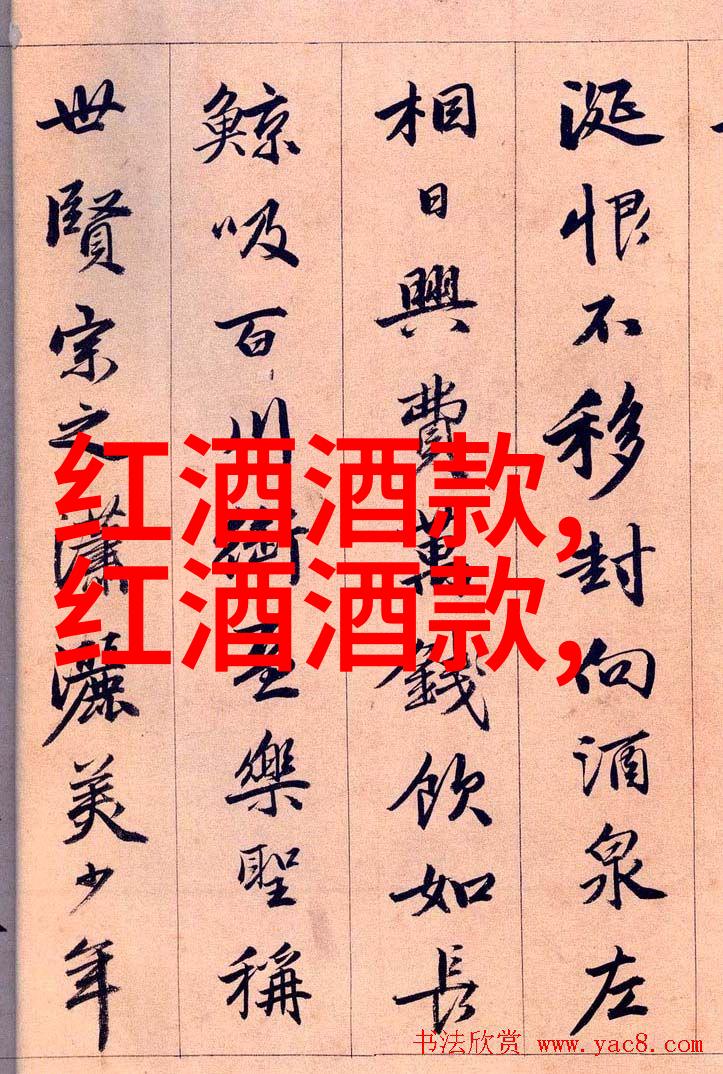 涎恨不移封向酒泉左
相日興費萬錢飲如長
鯨吸百川銜盃樂聖稱
世賢宗之瀟灑美少年
红酒酒款,
红酒酒款,
书法欣赏 www.yac8.com